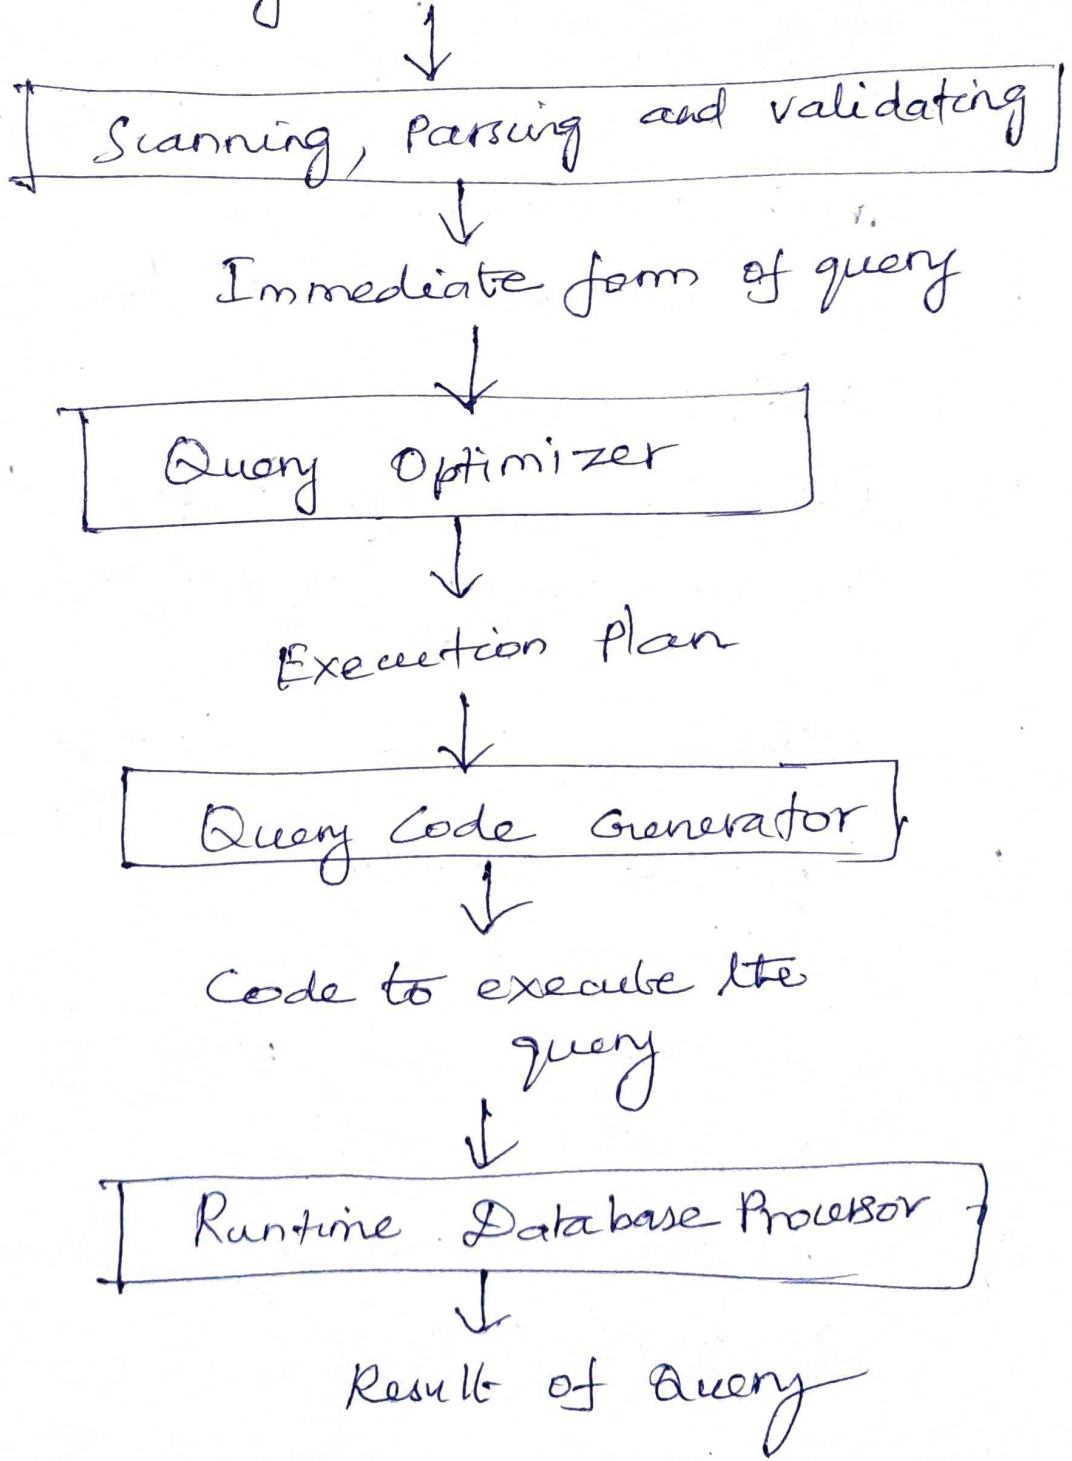 Scanning, Parsing and validating
Immediate form of query
Query Optimizer
Execution Plan
Query Code Generator
Code to execute the
query
Runtime Database Processor
Result of Query